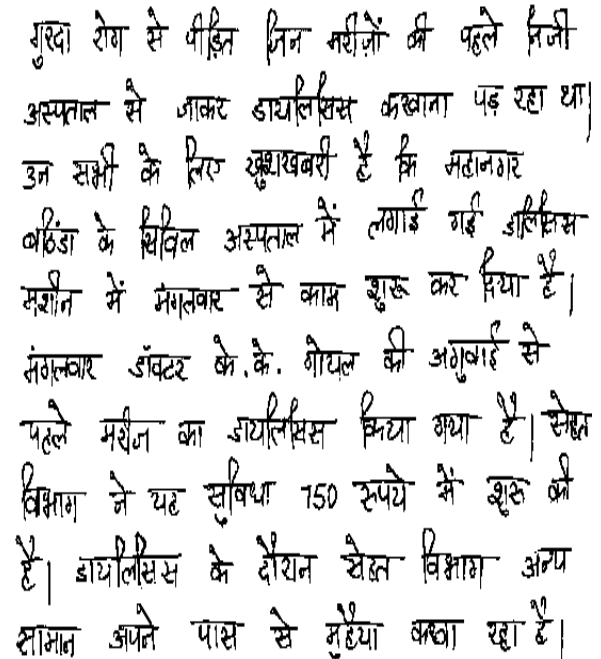 गुरदा रोग से पीड़ित जिन मरीज़ों को पहले निजी
अस्पताल से जाकर डायलिसिस करवाना पड़ रहा था|
उन सभी के लिए खुशखबरी है कि महानगर
बठिंडा के सिविल अस्पताल में लगाई गई डालिसिस
मशीन में मंगलवार से काम शुरू कर दिया है|
मंगलवार डॉक्टर के.के. गोयल की अगुवाई से
पहले मरीज का डायलिसिस किया गया है| सेहत
विभाग ने यह सुविधा 750 रुपये में शुरू की
है| डायलिसिस के दौरान सेहत विभाग अन्य
सामान अपने पास से मुहैया करवा रहा है|